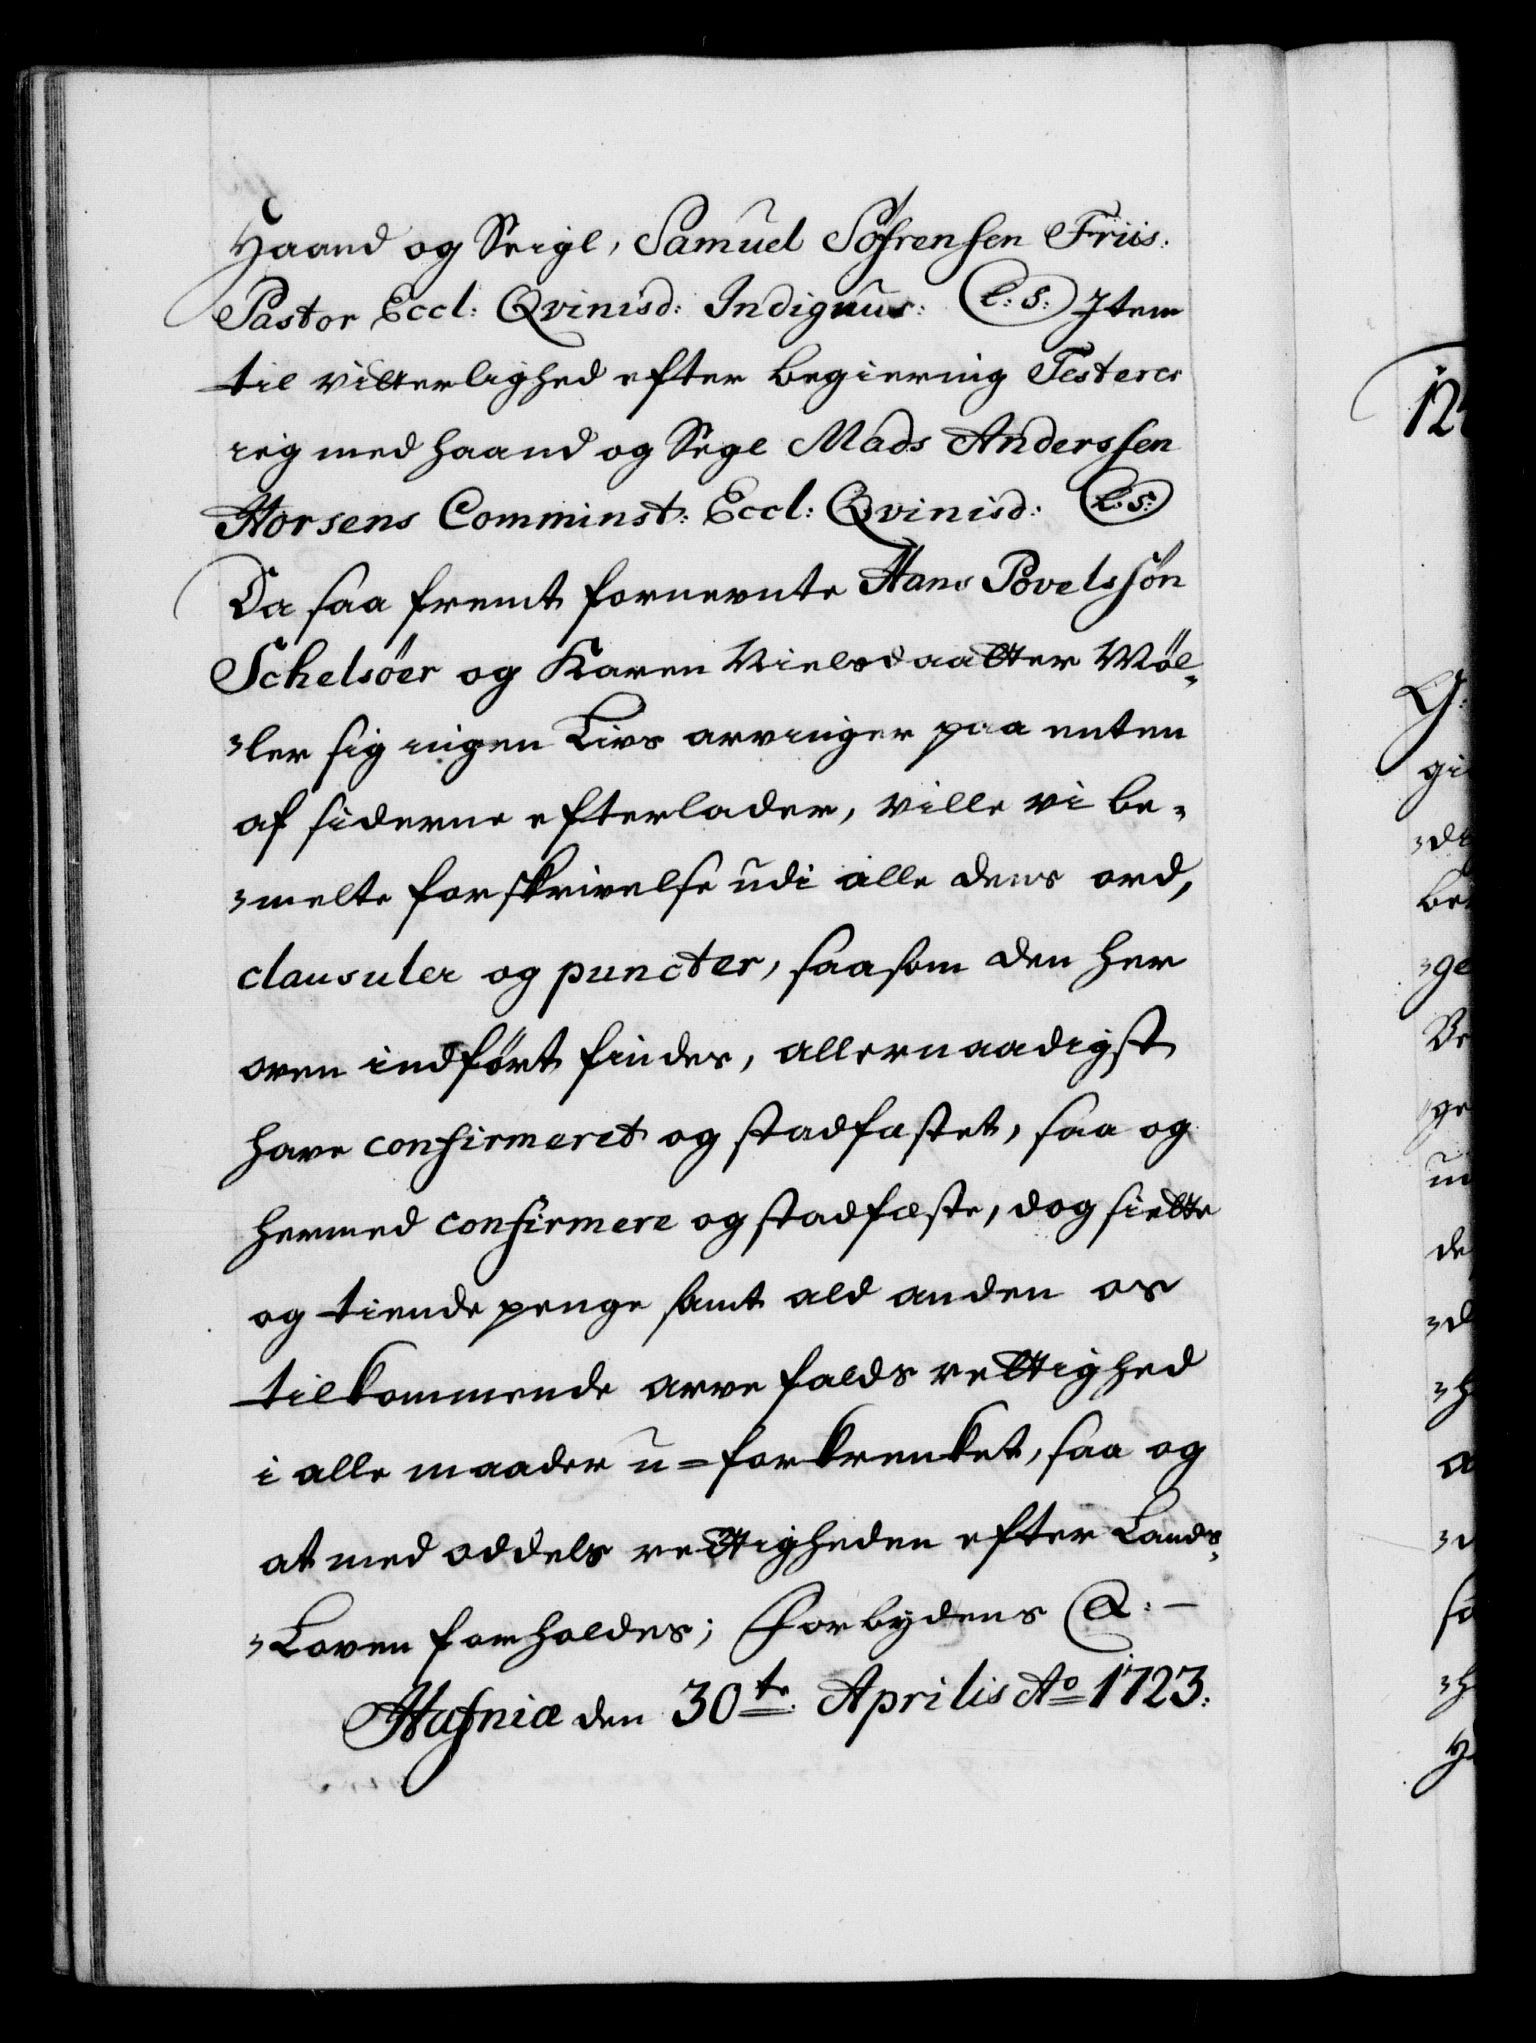 Haand og Seigl, Samuel Söfrensen Friis.
Pastor Eccl: Qvinisd: Indignus: L: S: Item
til vitterlighed efter begiering Testerer
ieg med haand og Segl Mads Anderssen
Horsens Comminst: Eccl: Qvinisd: L: S:
Da saa fremt fornevnte Hans Povelssön
Schelsöer og Karen Nielsdaatter Möl-
-ler sig ingen Livs arvinger paa enten
af siderne efterlader, ville vi be-
-melte forskrivelse udi alle dens ord,
clausuler og puncter, saasom den her
oven indfört findes, allernaadigst
have confirmeret og stadfæstet, saa og
hermed confirmere og stadfæste, dog siette
og tiende penge samt ald anden os
tilkommende arve falds rettighed
i alle maader u=forkrenket, saa og
at med oddels rettigheden efter Lands-
-Loven forholdes; Forbydens &: -
Hafniæ den 30te Aprilis Ao 1723.
12
G:
gi
-d
be
-ge
Ve
ge
un
de
-d
-h
a
so
-h
H